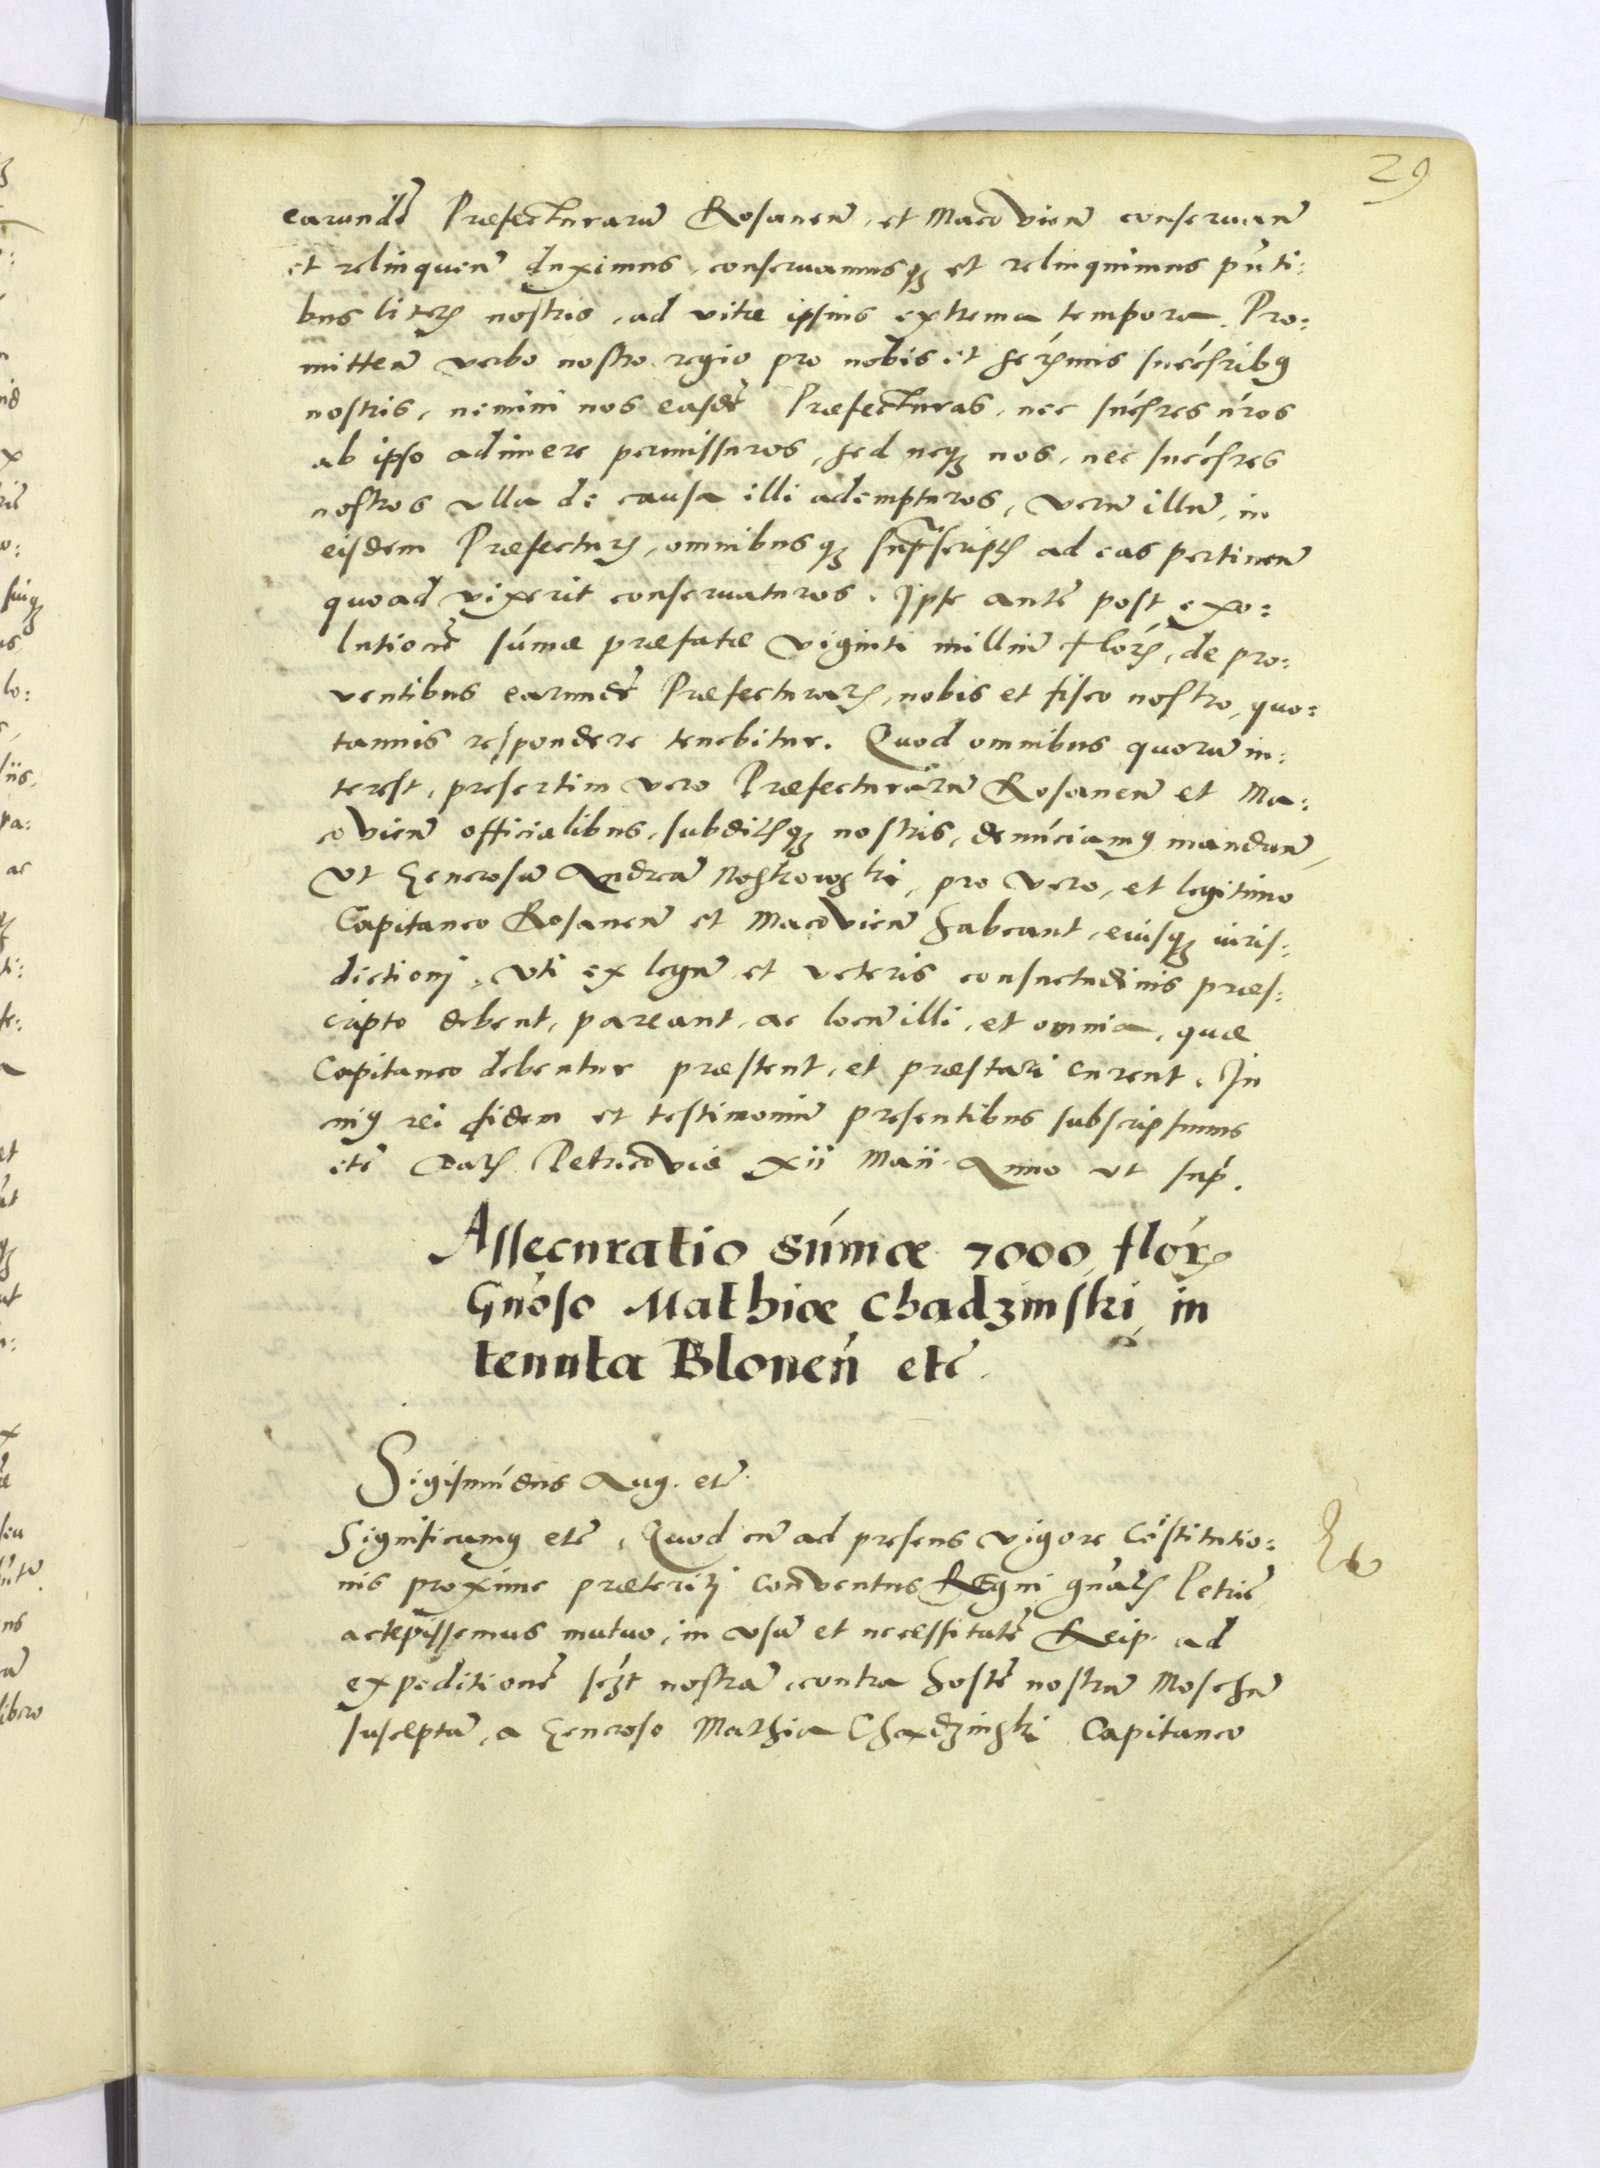 29
earundē Præfecturarū Rosanen̄, et Macovien̄ conseruan̄
et relinquen̄ duximus, conseruamusq3 et relinquimus pn̄ti:
bus literis nostris, ad vitæ ipsius extrema tempora. Pro:
mitten̄ verbo nostro regio pro nobis et serimis succribus
nostris, nemini nos easdē Præfecturas, nec succres nros
ab ipso adimere permissuros, sed neq3 nos, nec succres
nostros vlla de causa illi adempturos, verū illū, in
eisdem Præfecturis, omnibusq3 supscriptis ad eas pertinen̄
quoad vixerit conseruaturos. Ipse autē post exo:
lutionē sūmæ præfatæ viginti milliū flor, de pro:
uentibus earundē Præfecturar, nobis et fisco nostro, quo:
tannis respondere tenebitur. Quod omnibus quorū in:
terest, presertim vero Præfecturarū Rosanen̄ et Ma:
covien̄ officialibus, subditisq3 nostris, denūciamus mandan̄,
vt Generosū Andreā Noskowski, pro vero, et legitimo
Capitaneo Rosanen̄ et Macovien̄ habeant, eiusq3 iuris:
dictioni, vti ex legū et veteris consuetudinis præs:
cripto debent, pareant, ac locū illi, et omnia, quæ
Capitaneo debentur præstent, et præstari curent. In
cuius rei fidem et testimoniū presentibus subscripsimus
etc̄ Dat Petricoviæ xii Maii Anno vt sup.
Assecuratio sūmæ 7000 flor
Gnoso Mathiæ Chadzinski in
tenuta Blonen̄ etc̄.
Sigismūdus Aug. etc̄.
Significamus etc̄, Quod cū ad presens vigore Cōstitutio:
nis proxime præteriti Conventus Regni gnalis Petric̄
accepissemus mutuo, in vsū et necessitatē Reip. ad
expeditionē sczt nostrā, contra hostē nostrū Moschū
susceptā, a Generoso Mathia Chadzinski Capitaneo